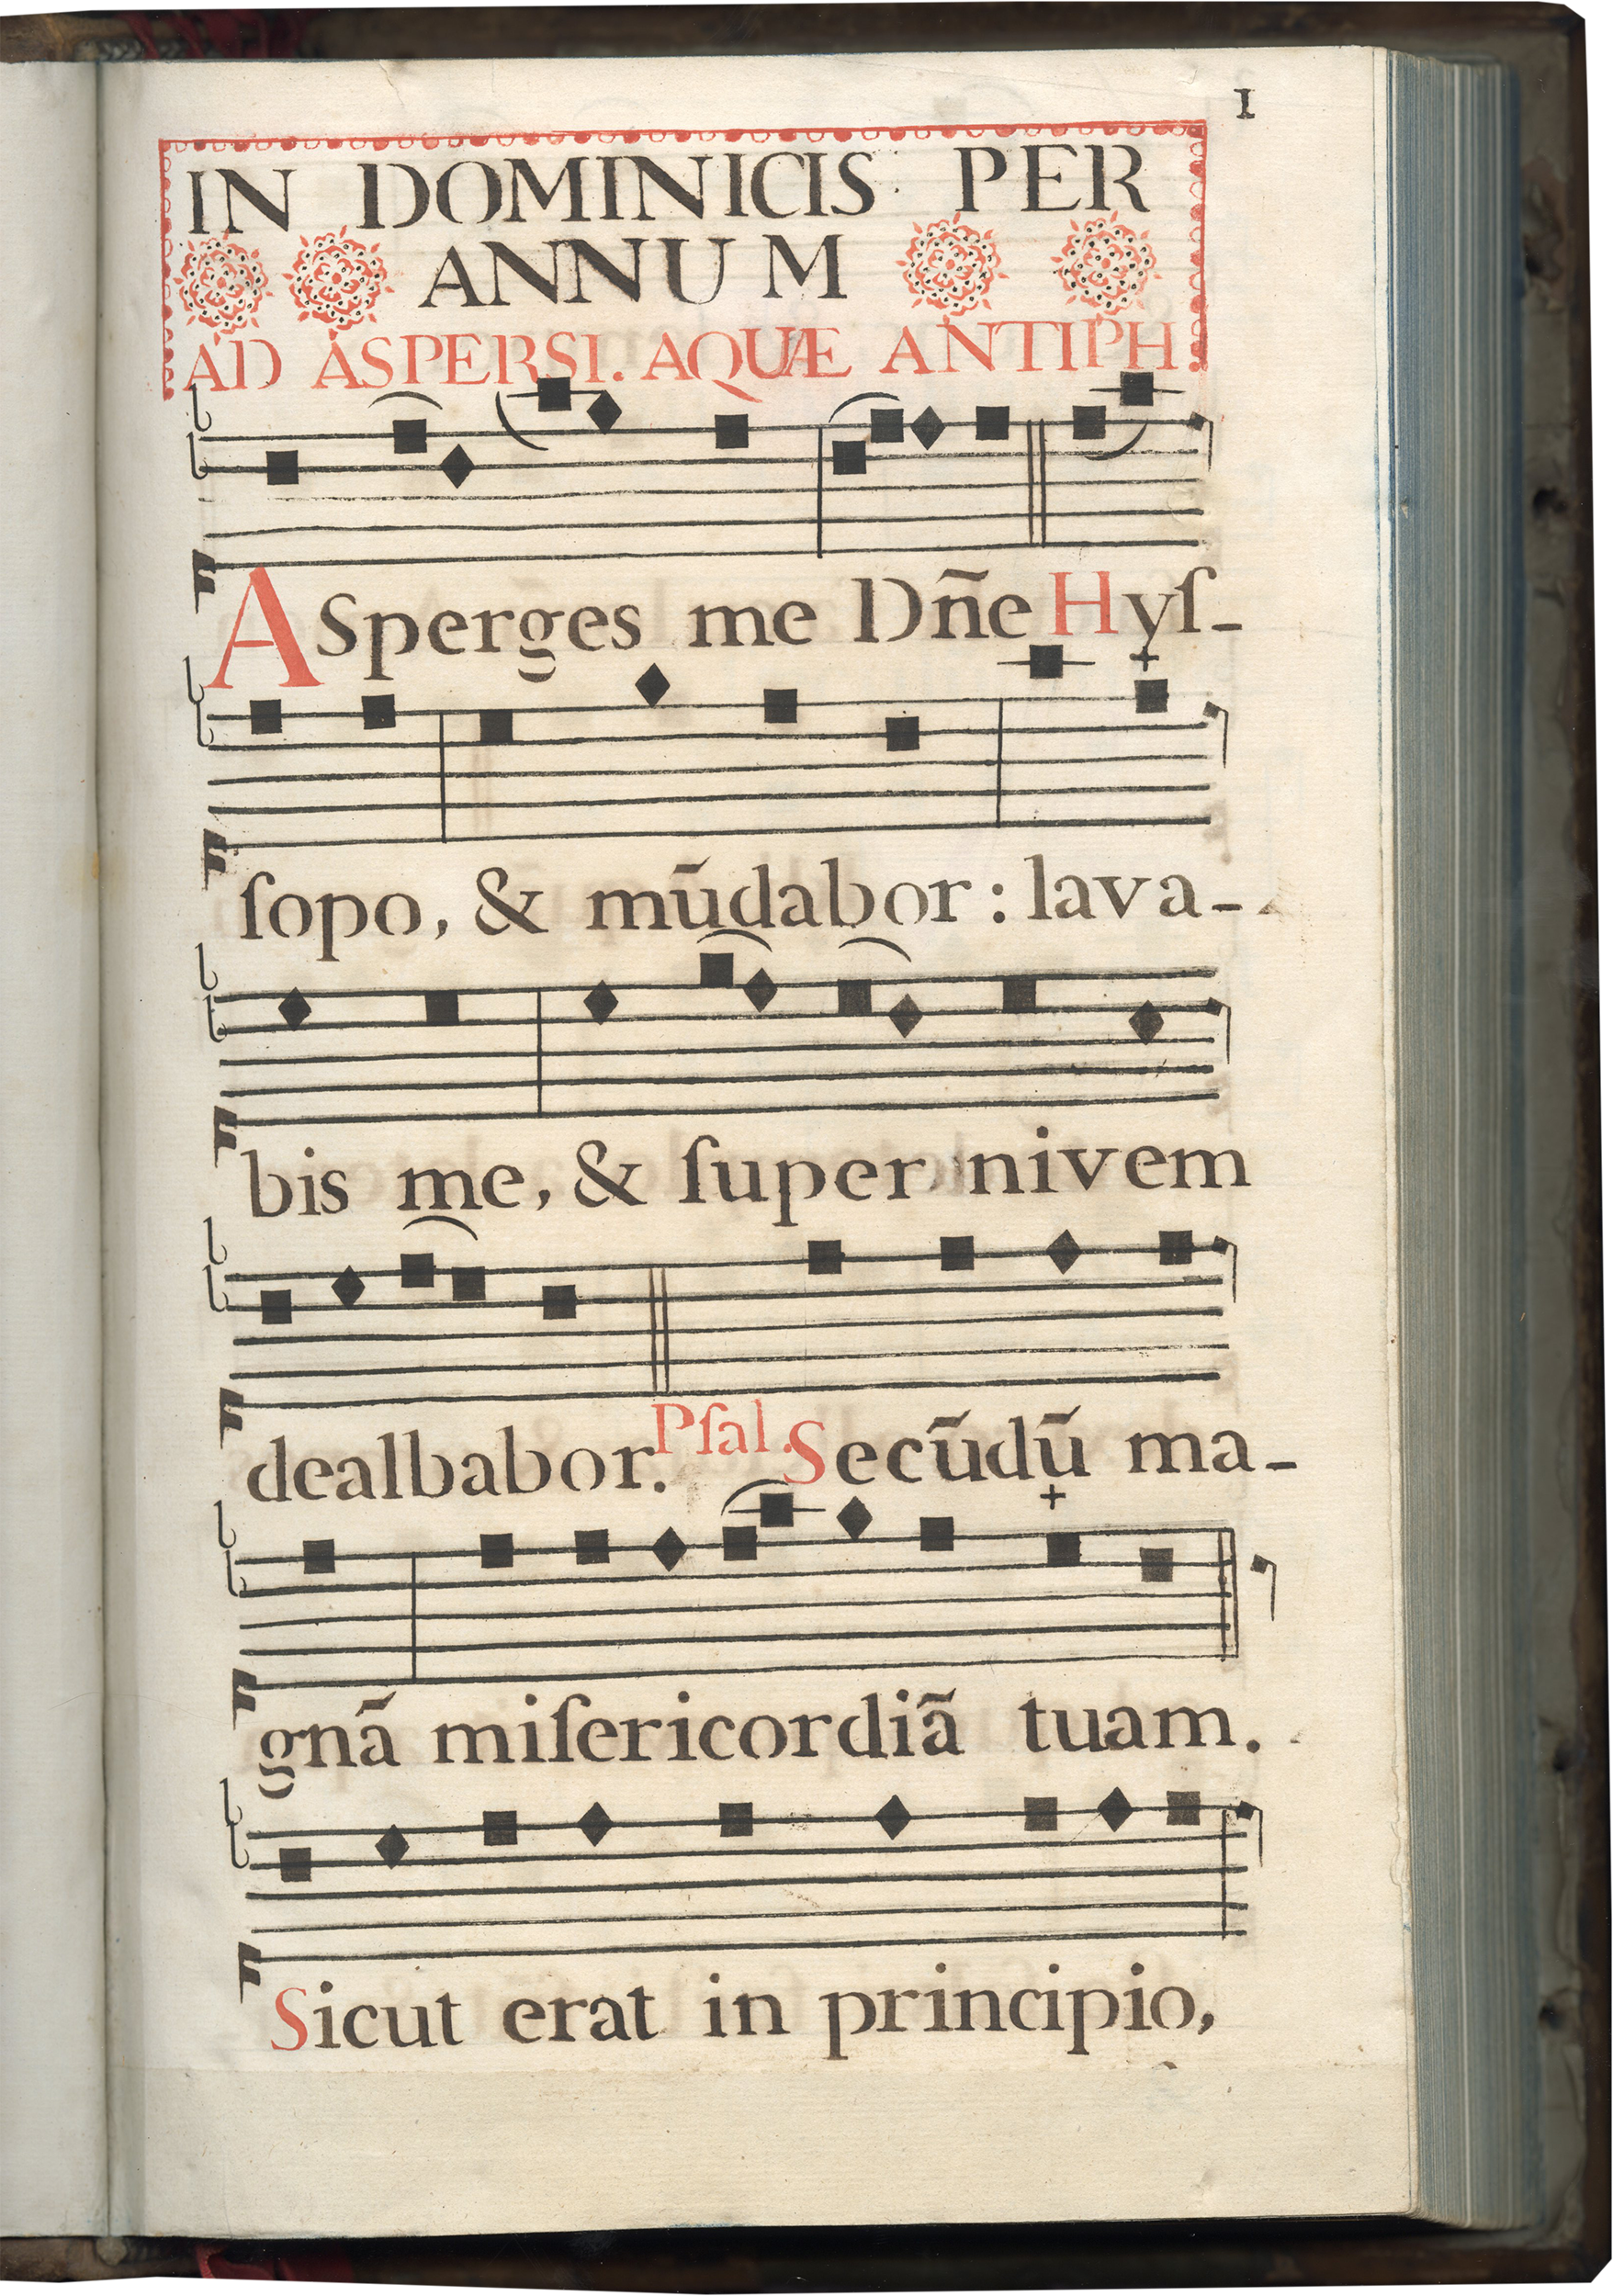 1
IN DOMINICIS PER
ANNUM
AD ASPERSI. AQUÆ ANTIPH.
ASperges me Dñe Hyſ-
ſopo, & mūdabor: lava-
bis me, & ſuper nivem
dealbabor. Pſal. Secūdū ma-
gnã miſericordiã tuam.
Sicut erat in principio,